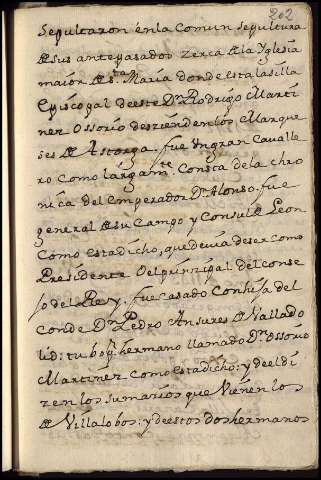 202
Sepultaron en la comun sepultura
de sus antepasados zerca de la Yglesia
maior de Sta Maria donde esta la silla
Episcopal de este Dn Rodrigo Marti
nez Ossorio deszienden los Marque
ses de Astorga. fue un gran Cavalle
ro como largamte consta de la chro
nica del emperador Dn Alonso. fue
general de su Campo y Consul de Leon
como esta dicho, que devia de ser como
Presidente o el prinzipal del conse
jo del Rey, fue casado con hija del
conde Dn Pedro Ansures de Vallado
lid: tubo hermano llamado Dn Ossorio
Martinez como esta dicho: y de el di
zen los sumarios que vienen los
de Villalobos: y de estos dos hermanos